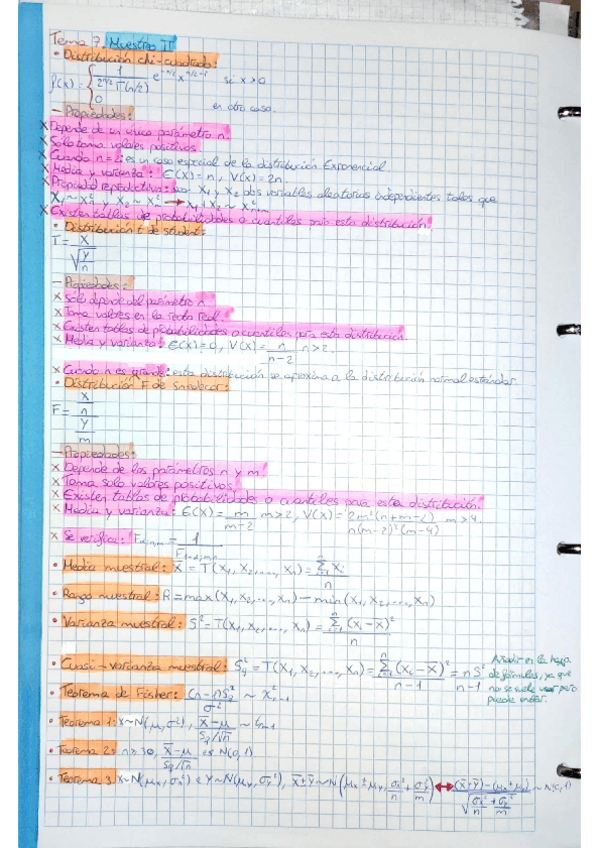 Tema 7: Muestreo II
• Distribución chi-cuadrado:
f(x) = { 1/(2^(n/2) Γ(n/2)) e^(-x/2) x^(n/2-1) si x>0
0 en otro caso.
- Propiedades:
x Depende de un único parámetro n.
x Solo toma valores positivos.
x Cuando n=2: es un caso especial de la distribución Exponencial
x Media y varianza: E(X)=n, V(X)=2n.
x Propiedad reproductiva: X₁ y X₂ dos variables aleatorias independientes tales que
X₁~X²ₙ y X₂~X²ₘ → X₁+X₂~X²ₙ₊ₘ
x Existen tablas de probabilidades o cuantiles para esta distribución.
• Distribución t de student:
T = X/√(Y/n)
- Propiedades:
x Solo depende del parámetro n.
x Toma valores en la recta real.
x Existen tablas de probabilidades o cuantiles para esta distribución.
x Media y varianza: E(X)=0, V(X)= n/(n-2) n>2.
x Cuando n es grande: esta distribución se aproxima a la distribución normal estándar.
• Distribución F de Snedecor:
F = (X/n)/(Y/m)
- Propiedades:
x Depende de los parámetros n y m.
x Toma solo valores positivos.
x Existen tablas de probabilidades o cuantiles para esta distribución.
x Media y varianza: E(X)= m/(m-2) m>2, V(X)= 2m²(n+m-2)/(n(m-2)²(m-4)) m>4.
x Se verifica: 
• Media muestral: X̄ = T(X₁, X₂, ..., Xₙ) = Σⁿᵢ₌₁ Xᵢ/n
• Rango muestral: R = max(X₁, X₂, ..., Xₙ) - min(X₁, X₂, ..., Xₙ)
• Varianza muestral: S² = T(X₁, X₂, ..., Xₙ) = Σⁿᵢ₌₁ (Xᵢ-X̄)²/n
• Cuasi-varianza muestral: = T(X₁, X₂, ..., Xₙ) = Σⁿᵢ₌₁ (Xᵢ-X̄)²/(n-1) = n S²/(n-1)
Añadir en la hoja
de fórmulas, ya que
no se suele usar pero
puede entrar.
• Teorema de Fisher: ~ X²ₙ₋₁
• Teorema 1: X~N(μ,σ²), ~ tₙ₋₁
• Teorema 2: n≥30, N(0,1)
• Teorema 3: X~N(μₓ,σₓ²) e Y~N(μᵧ,σᵧ²), X̄±Ȳ~N(μₓ±μᵧ, σₓ²/n + σᵧ²/m) ↔ ((X̄±Ȳ)-(μₓ±μᵧ))/√(σₓ²/n + σᵧ²/m) ~ N(0,1)